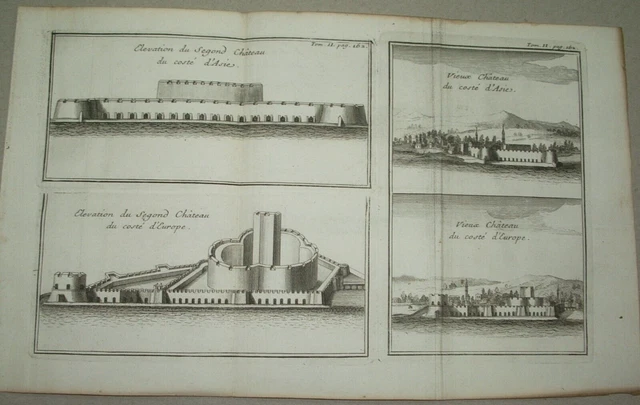 Elevation du Segond Château
du costé d'Asie.
Tom. II. pag. 162.
Elevation du Segond Château
du costé d'Europe.
Tom. II. pag. 162.
Vieux Château
du costé d'Asie.
Vieux Château
du costé d'Europe.